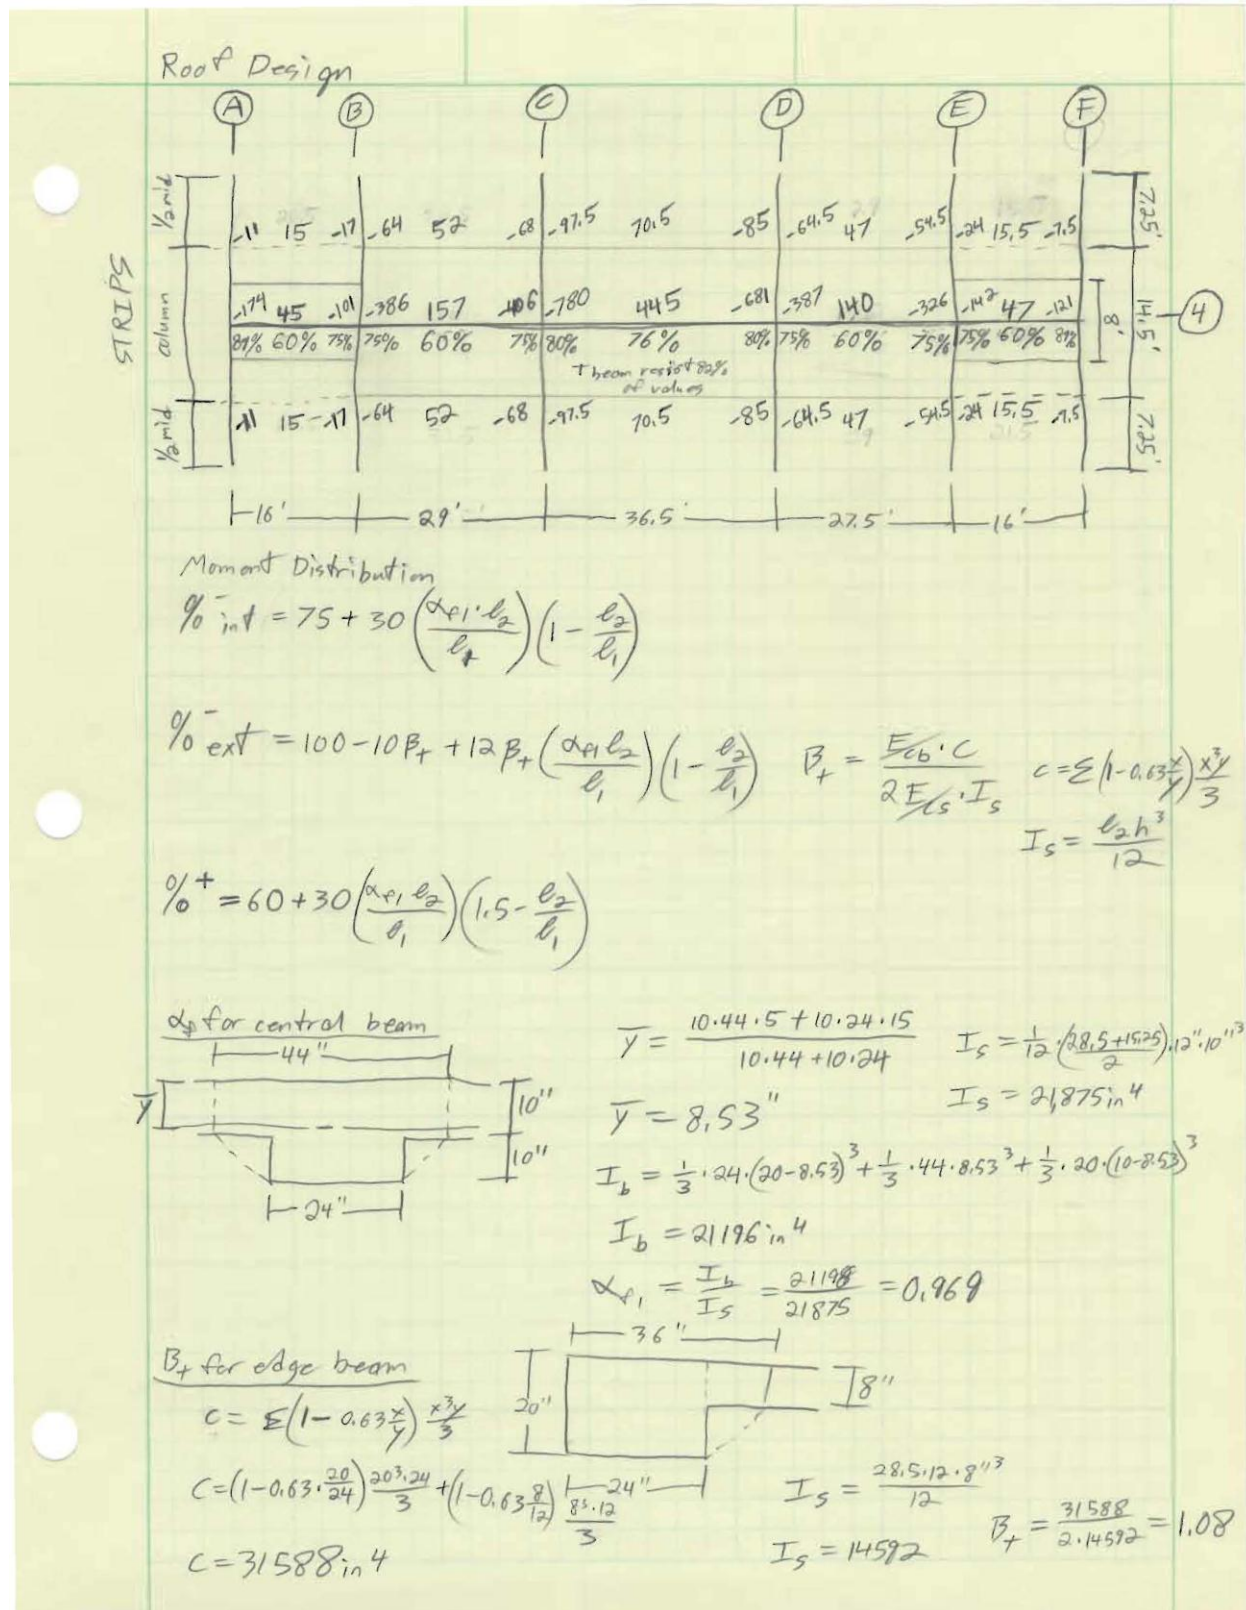 Roof Design
A B C D E F
½ mid -11 15 -17 -64 52 -68 -97.5 70.5 -85 -64.5 47 -54.5 -24 15.5 -7.5 7.25'
STRIPS
column -174 45 -101 -386 157 -406 -780 445 -681 -387 140 -326 -142 47 -121 8' 14.5' 4
60% 75% 75% 60% 75% 80% 76% 80% 75% 60% 75% 75% 60%
T beam resist 82%
of values
½ mid -11 15 -17 -64 52 -68 -97.5 70.5 -85 -64.5 47 -54.5 -24 15.5 -7.5 7.25'
16' 29' 36.5' 27.5' 16'
Moment Distribution
%⁻int = 75 + 30 (αf1·l2/l1)(1 - l2/l1)
%⁻ext = 100 - 10βt + 12βt (αf1 l2/l1)(1 - l2/l1) βt = Ecb·C/2Ecs·Is c = Σ(1-0.63 x/y) x³y/3
Is = l2h³/12
%⁺ = 60 + 30 (αf1 l2/l1)(1.5 - l2/l1)
αf for central beam
44"
ȳ 10"
10"
24"
ȳ = 10·44·5 + 10·24·15/10·44 + 10·24 Is = 1/12·(28.5+15.25/2)·12"·10"³
ȳ = 8.53" Is = 21,875 in⁴
Ib = 1/3·24·(20-8.53)³ + 1/3·44·8.53³ + 1/3·20·(10-8.53)³
Ib = 21196 in⁴
αf1 = Ib/Is = 21198/21875 = 0.969
βt for edge beam
36"
20" 8"
24"
c = Σ(1-0.63 x/y) x³y/3
C = (1-0.63·20/24) 20³·24/3 + (1-0.63 8/12) 8³·12/3
C = 31588 in⁴
Is = 28.5·12·8"³/12
Is = 14592
βt = 31588/2·14592 = 1.08